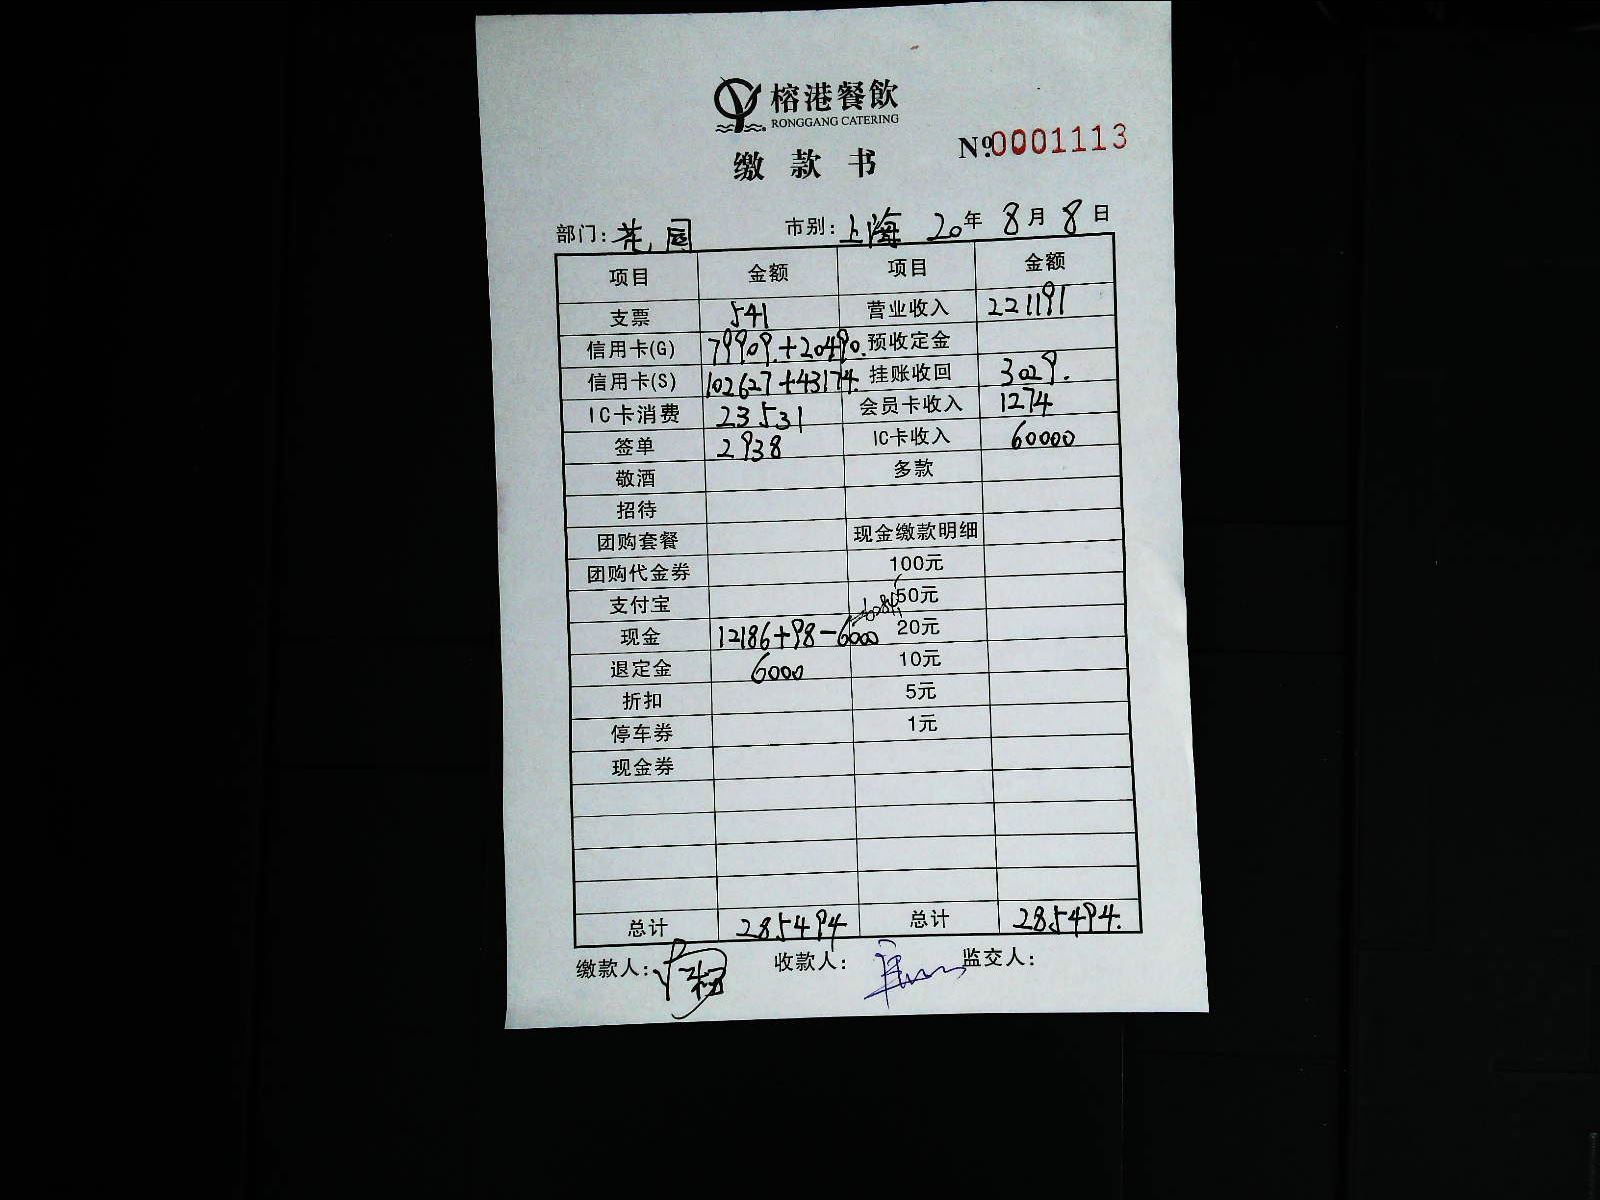 榕港餐飲
RONGGANG CATERING
缴款书
Nº.0001113
部门:花园 市别:上海 20年8月8日
项目 金额 项目 金额
支票 541 营业收入 221191
信用卡(G) 79909.+20490. 预收定金
信用卡(S) 102627+43174. 挂账收回 3029.
IC卡消费 23531 会员卡收入 1274
签单 2938 IC卡收入 60000
敬酒 多款
招待
团购套餐 现金缴款明细
团购代金券 100元
支付宝 50元
现金 12186+98-6000 20元
退定金 6000 10元
折扣 5元
停车券 1元
现金券
总计 285494 总计 285494.
缴款人: 收款人: 监交人: